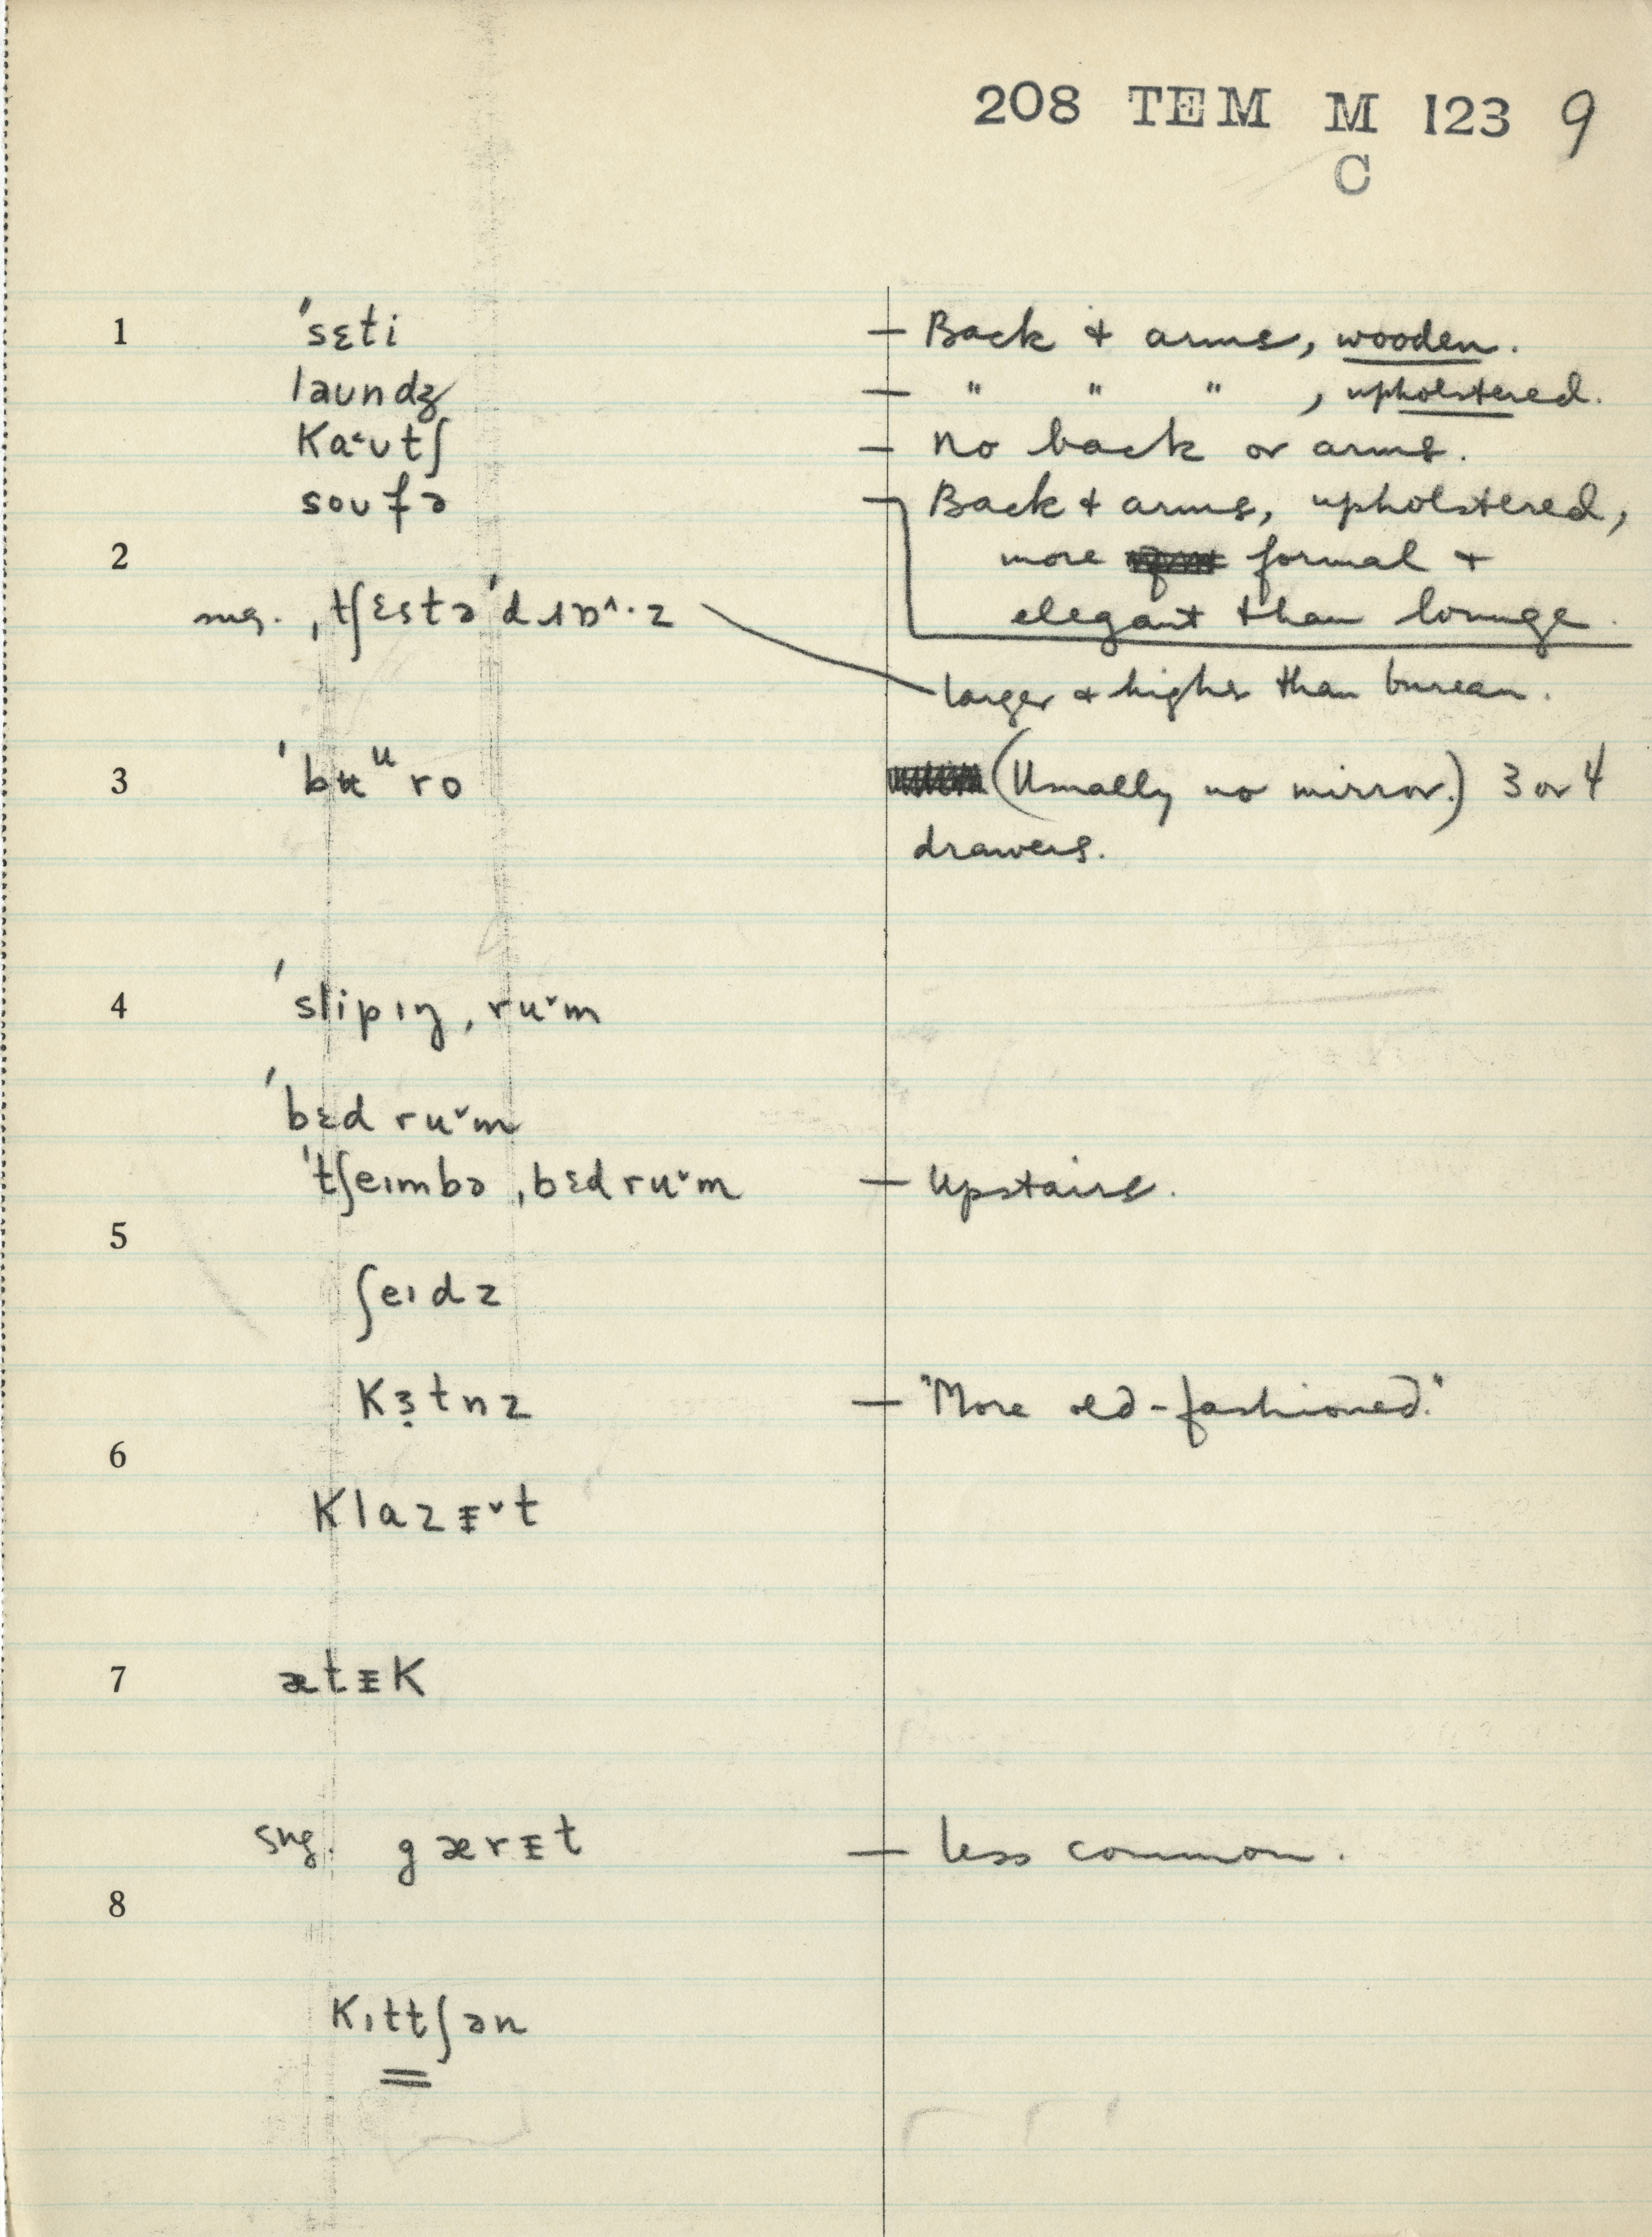 208 TEM M 123 9
C
1 ˈsɛti — Back + arms, wooden.
laundʒ — " " " , upholstered.
Ka˂ʊtʃ — No back or arms.
soufə — Back + arms, upholstered,
2 more formal +
sug. ˌtʃɛstəˈd z elegant than lounge.
larger + higher than bureau.
3 ˈbʉᵘro (Usually no mirror.) 3 or 4
drawers.
4 ˈslipɪŋˌru˅m
ˈbɛd ru˅m
ˈtʃeɪmbəˌbɛdru˅m — Upstairs.
5
ʃeɪdz
Kɜ̣tnz — "More old-fashioned."
6
Klazᵻ˅t
7 ætᵻK
sug. gærᵻt — less common.
8
Kɪttʃən